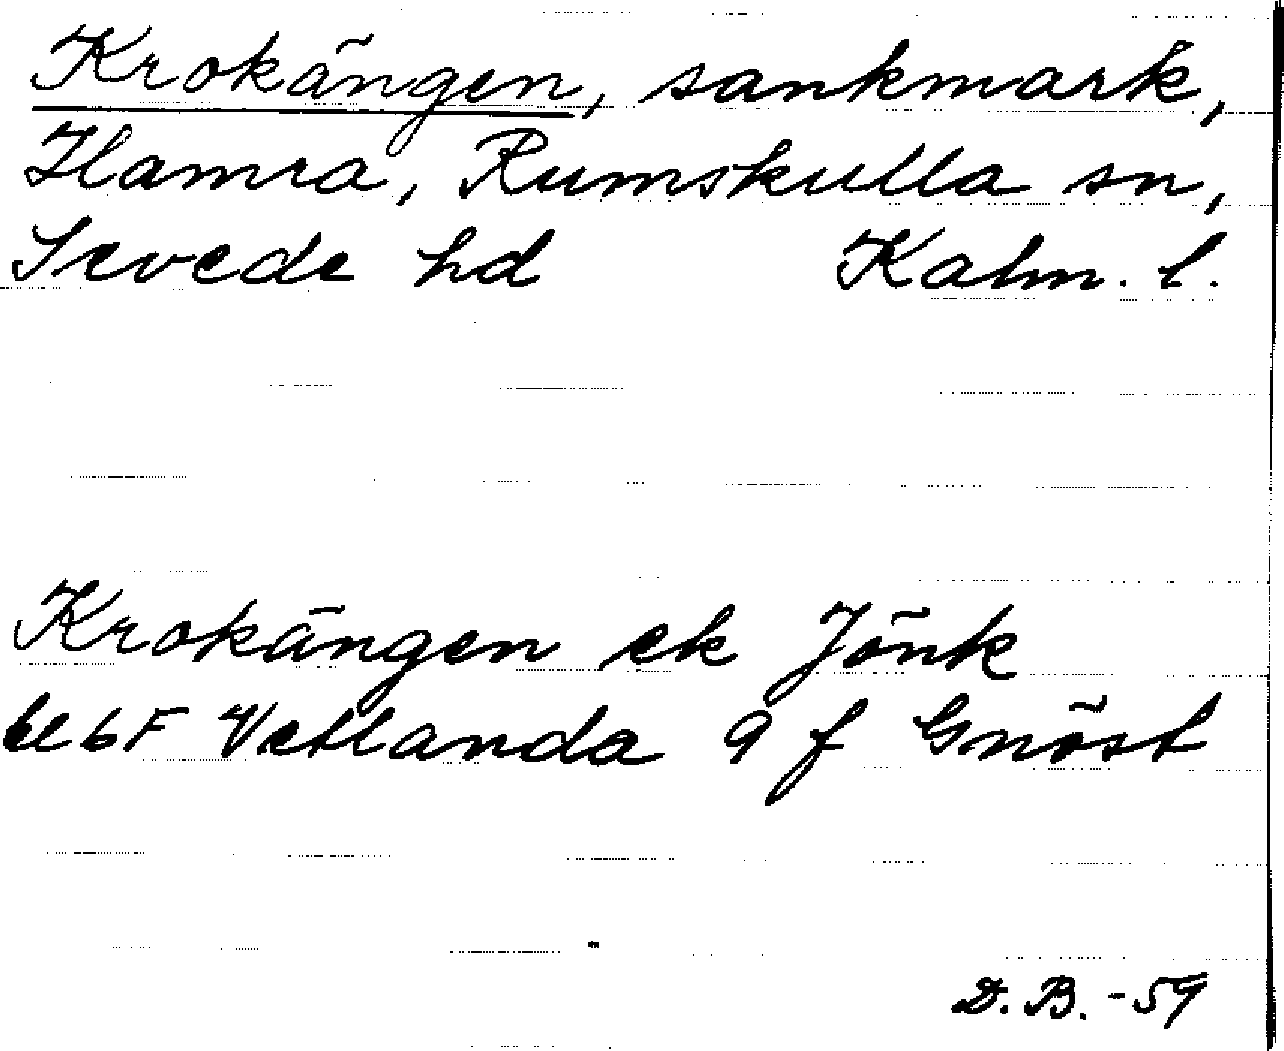 Krokängen, sankmark,
Hamra, Rumskulla sn,
Sevede hd Kalm. l.
Krokängen ek Jönk
bl 6F Vetlanda 9 f Gnöst
D. B. -59